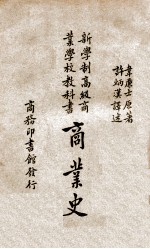 韋廉士原著
許炳漢譯述
新學制高級商
業學校教科書
商業史
商務印書館發行